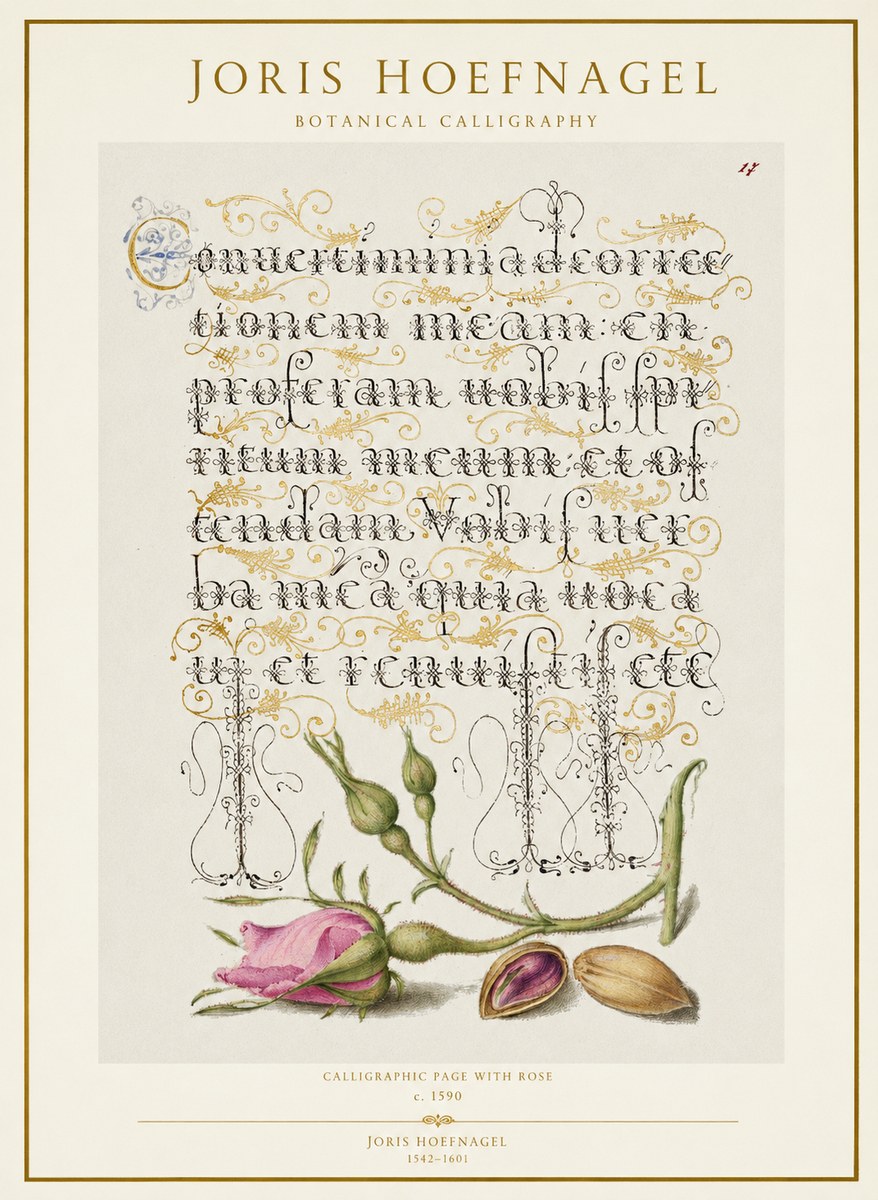 JORIS HOEFNAGEL
BOTANICAL CALLIGRAPHY
17
Conuertimini ad correc
tionem meam: en
proferam uobis spi
ritum meum: et os
tendam Vobis uer
ba mea quia uoca
ui et renuistis etc
CALLIGRAPHIC PAGE WITH ROSE
c. 1590
JORIS HOEFNAGEL
1542–1601